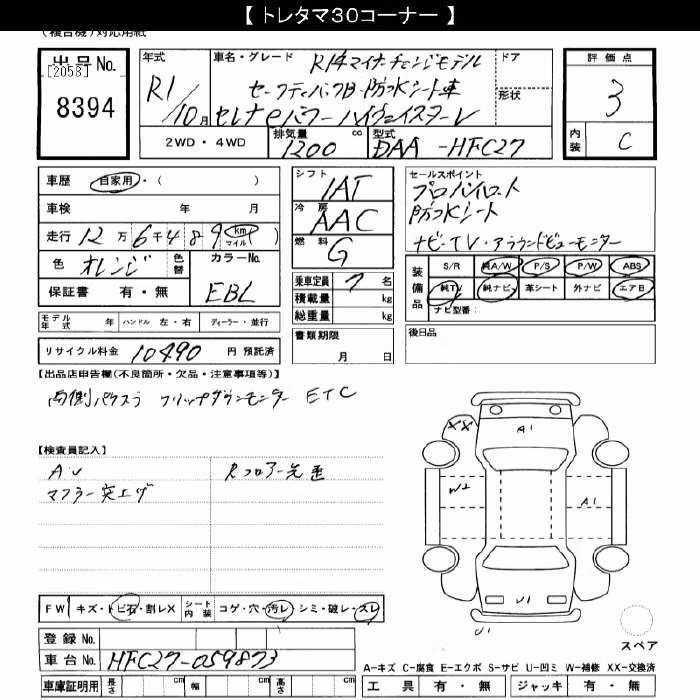 【 トレタマ30コーナー 】
(複合機)対応用紙
出品No.
[2058]
8394
年式
R1/10月
車名・グレード
R1年マイナーチェンジモデル
セーフティパックB・防水シート車
セレナeパワー ハイウェイスターV
ドア
形状
2WD・4WD
排気量 1200 cc
型式 DAA-HFC27
評価点
3
内装 C
車歴 自家用・( )
車検 年 月
走行 12万6千489 km マイル
色 オレンジ 色替 カラーNo.
保証書 有・無 EBL
モデル年式 年 ハンドル 左・右 ディーラー・並行
リサイクル料金 10490 円 預託済
シフト IAT
冷房 AAC
燃料 G
乗車定員 7 名
積載量 kg
総重量 kg
書類期限
月 日
セールスポイント
プロパイロット
防水シート
ナビ・TV・アラウンドビューモニター
装備品 S/R 純A/W P/S P/W ABS
純TV 純ナビ 革シート 外ナビ エアB
ナビ型番:
後日品
【出品店申告欄(不良箇所・欠品・注意事項等)】
両側パワスラ フリップダウンモニター ETC
【検査員記入】
A.U
マフラー突上げ
Rフロアー先歪
FW キズ・トビ石・割レX シート内装 コゲ・穴・汚レ・シミ・破レ・スレ
登録No.
車台No. HFC27-059873
車庫証明用 長さ cm 幅 cm 高さ cm
XX
A1
W2
A1
U1
U1
スペア
A-キズ C-腐食 E-エクボ S-サビ U-凹ミ W-補修 XX-交換済
工具 有・無 ジャッキ 有・無